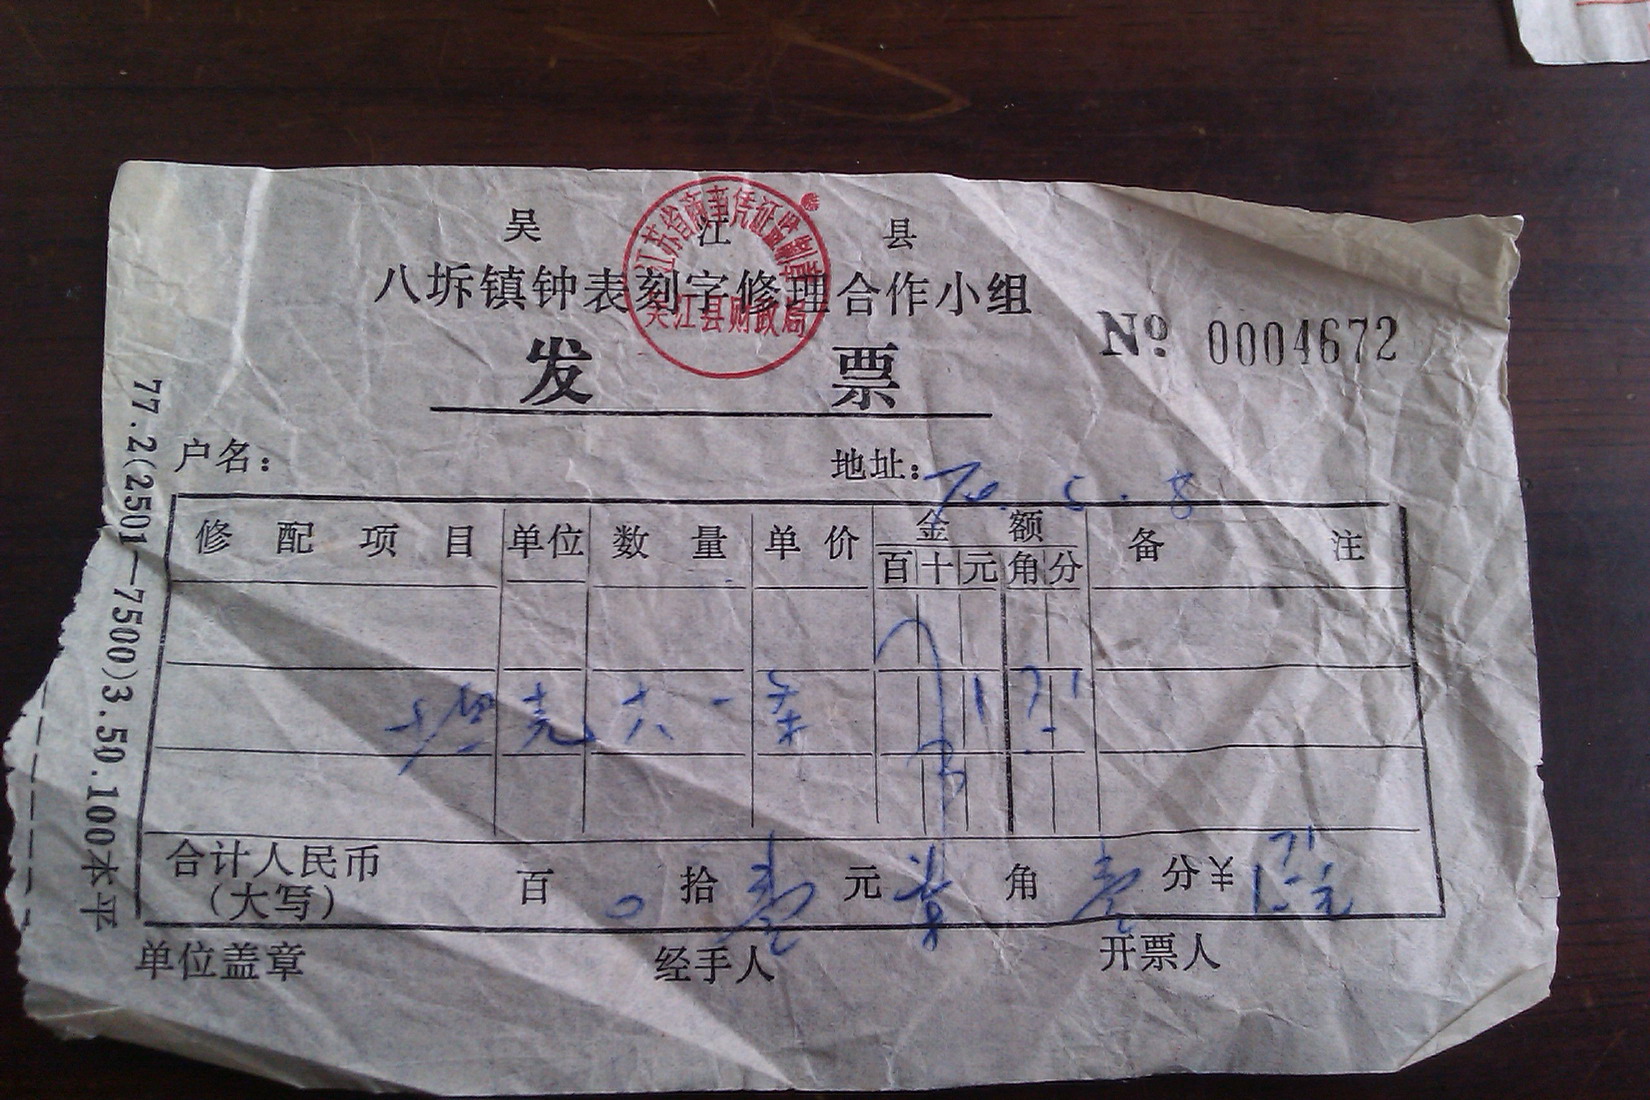 吴江县
江苏省商事凭证监制章
吴江县财政局
八坼镇钟表刻字修理合作小组
发票
№ 0004672
户名：
地址：
修配项目 单位 数量 单价 金额 备注
百 十 元 角 分
六一
合计人民币 百 0 拾 壹 元 角 壹 分￥
（大写）
单位盖章 经手人 开票人
77.2(2501—7500)3.50.100本平